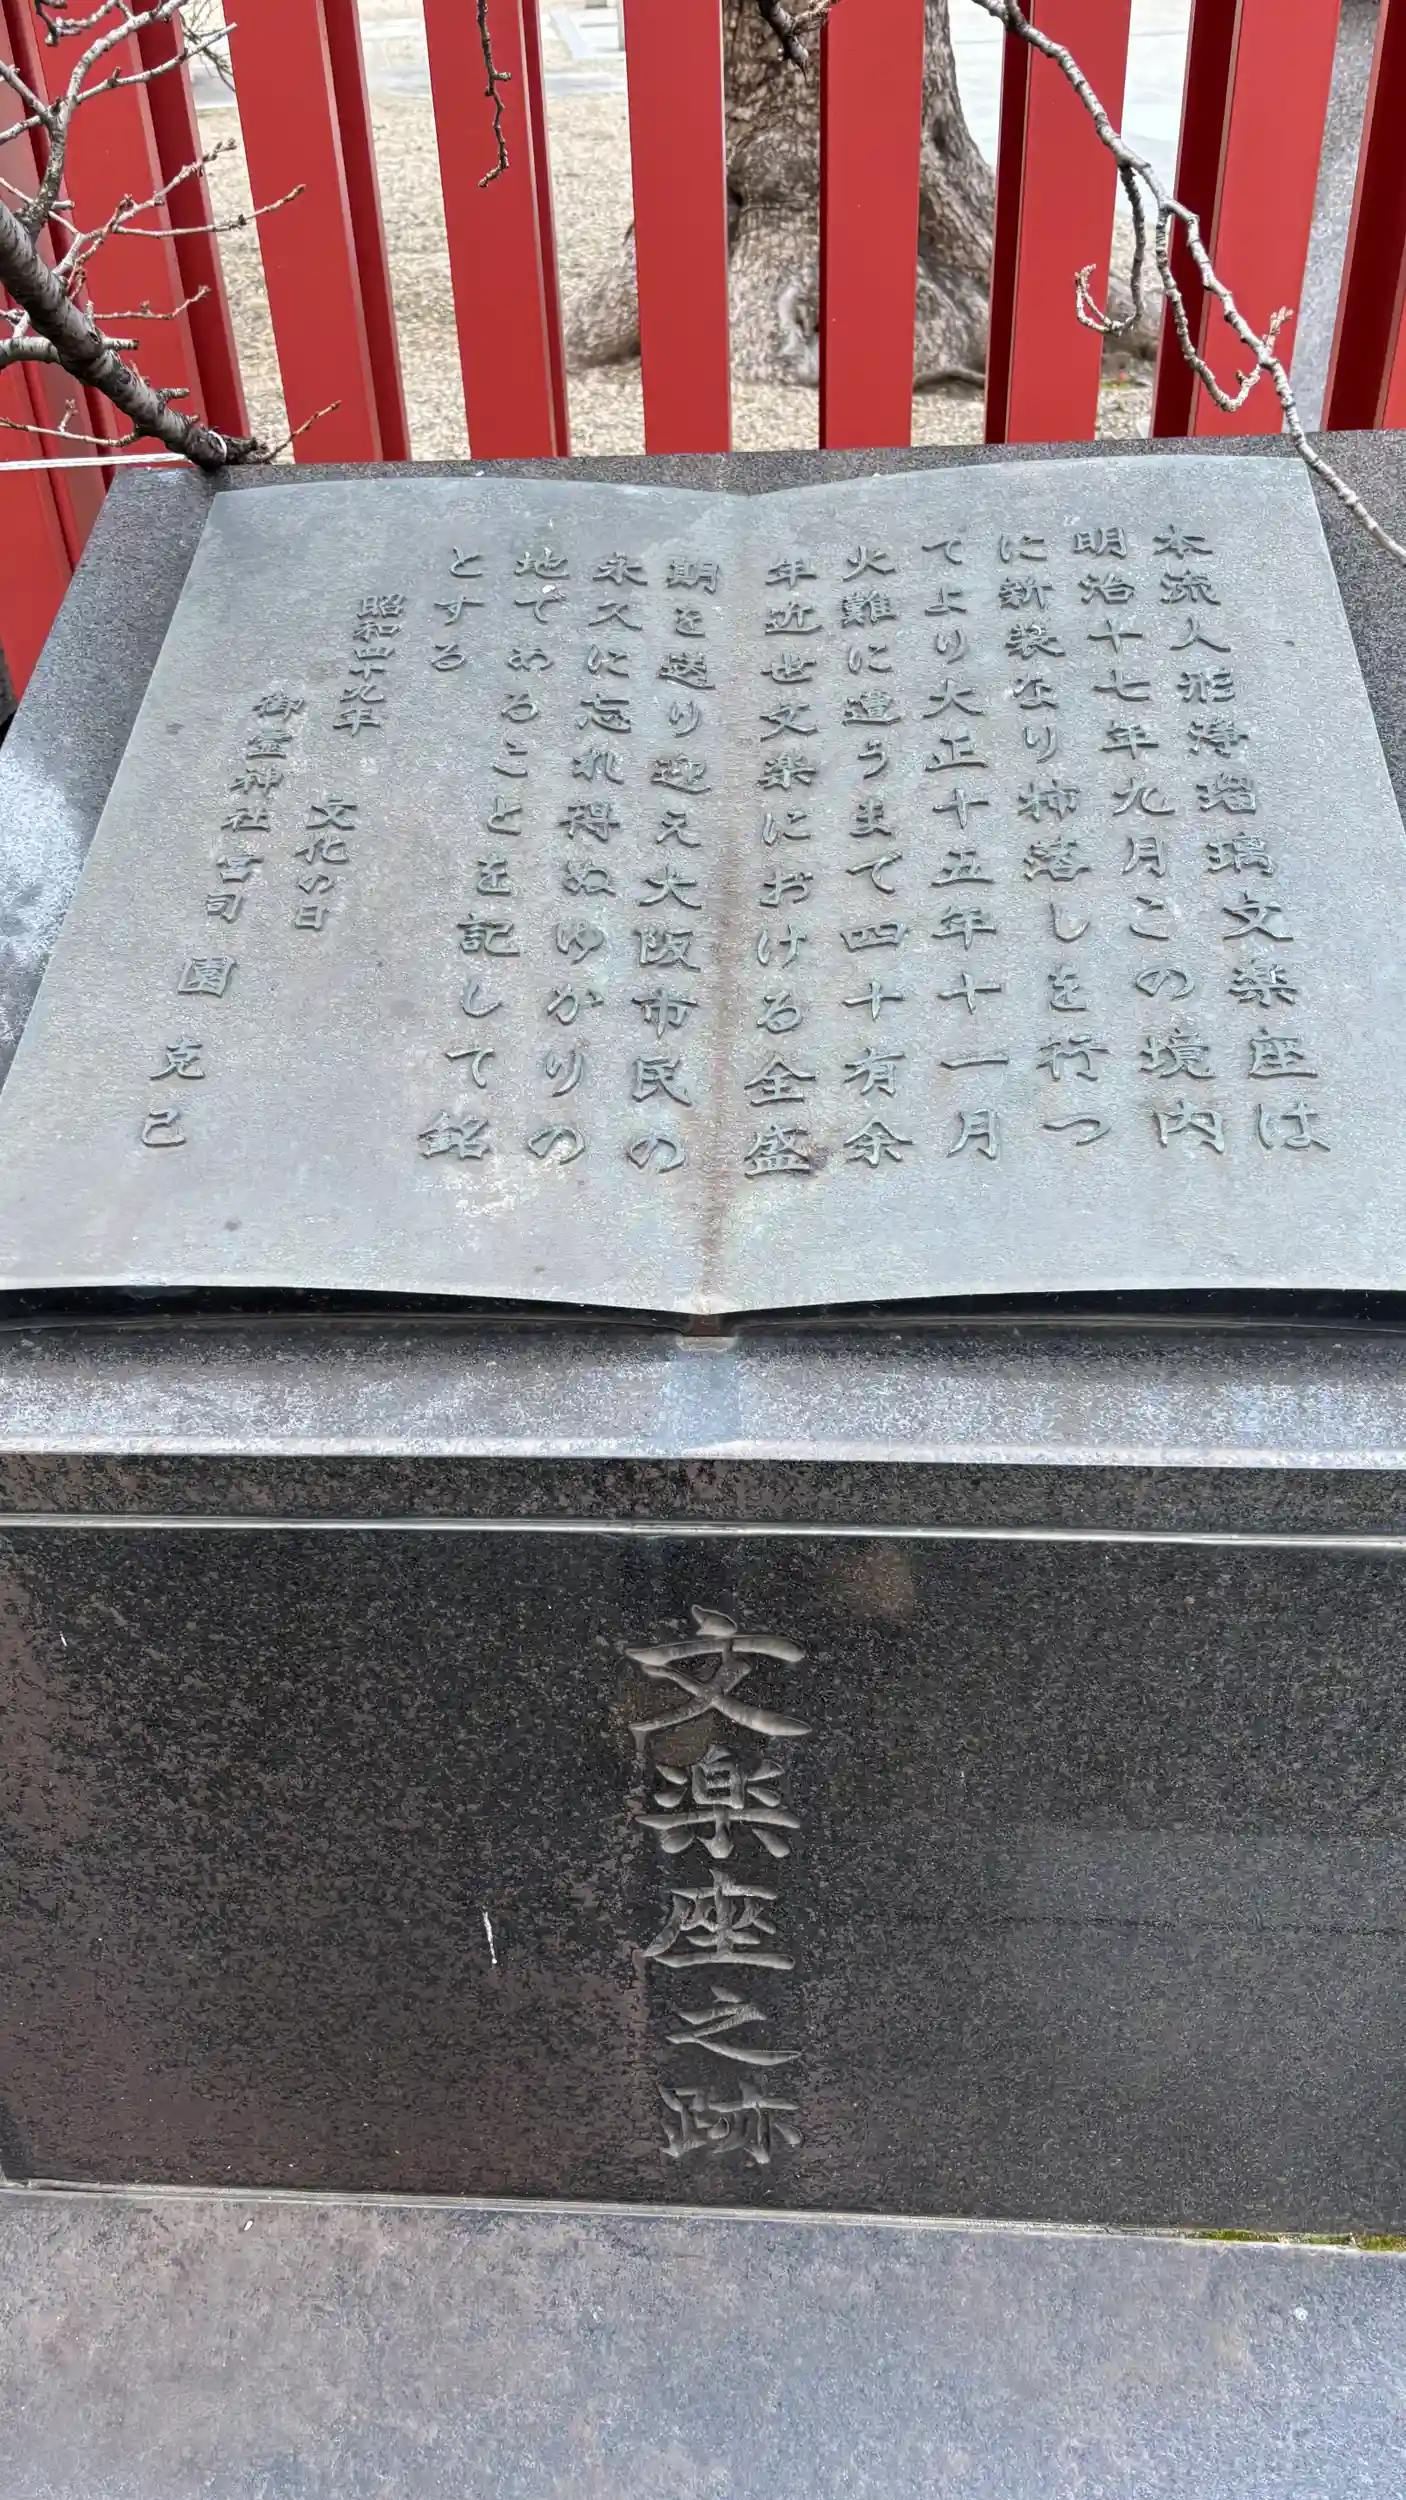 本流人形浄瑠璃文楽座は
明治十七年九月この境内
に新装なり柿落しを行つ
てより大正十五年十一月
火難に遭うまで四十有余
年近世文楽における全盛
期を送り迎え大阪市民の
永久に忘れ得ぬゆかりの
地であることを記して銘
とする
昭和四十九年
文化の日
御霊神社宮司 園克己
文楽座之跡